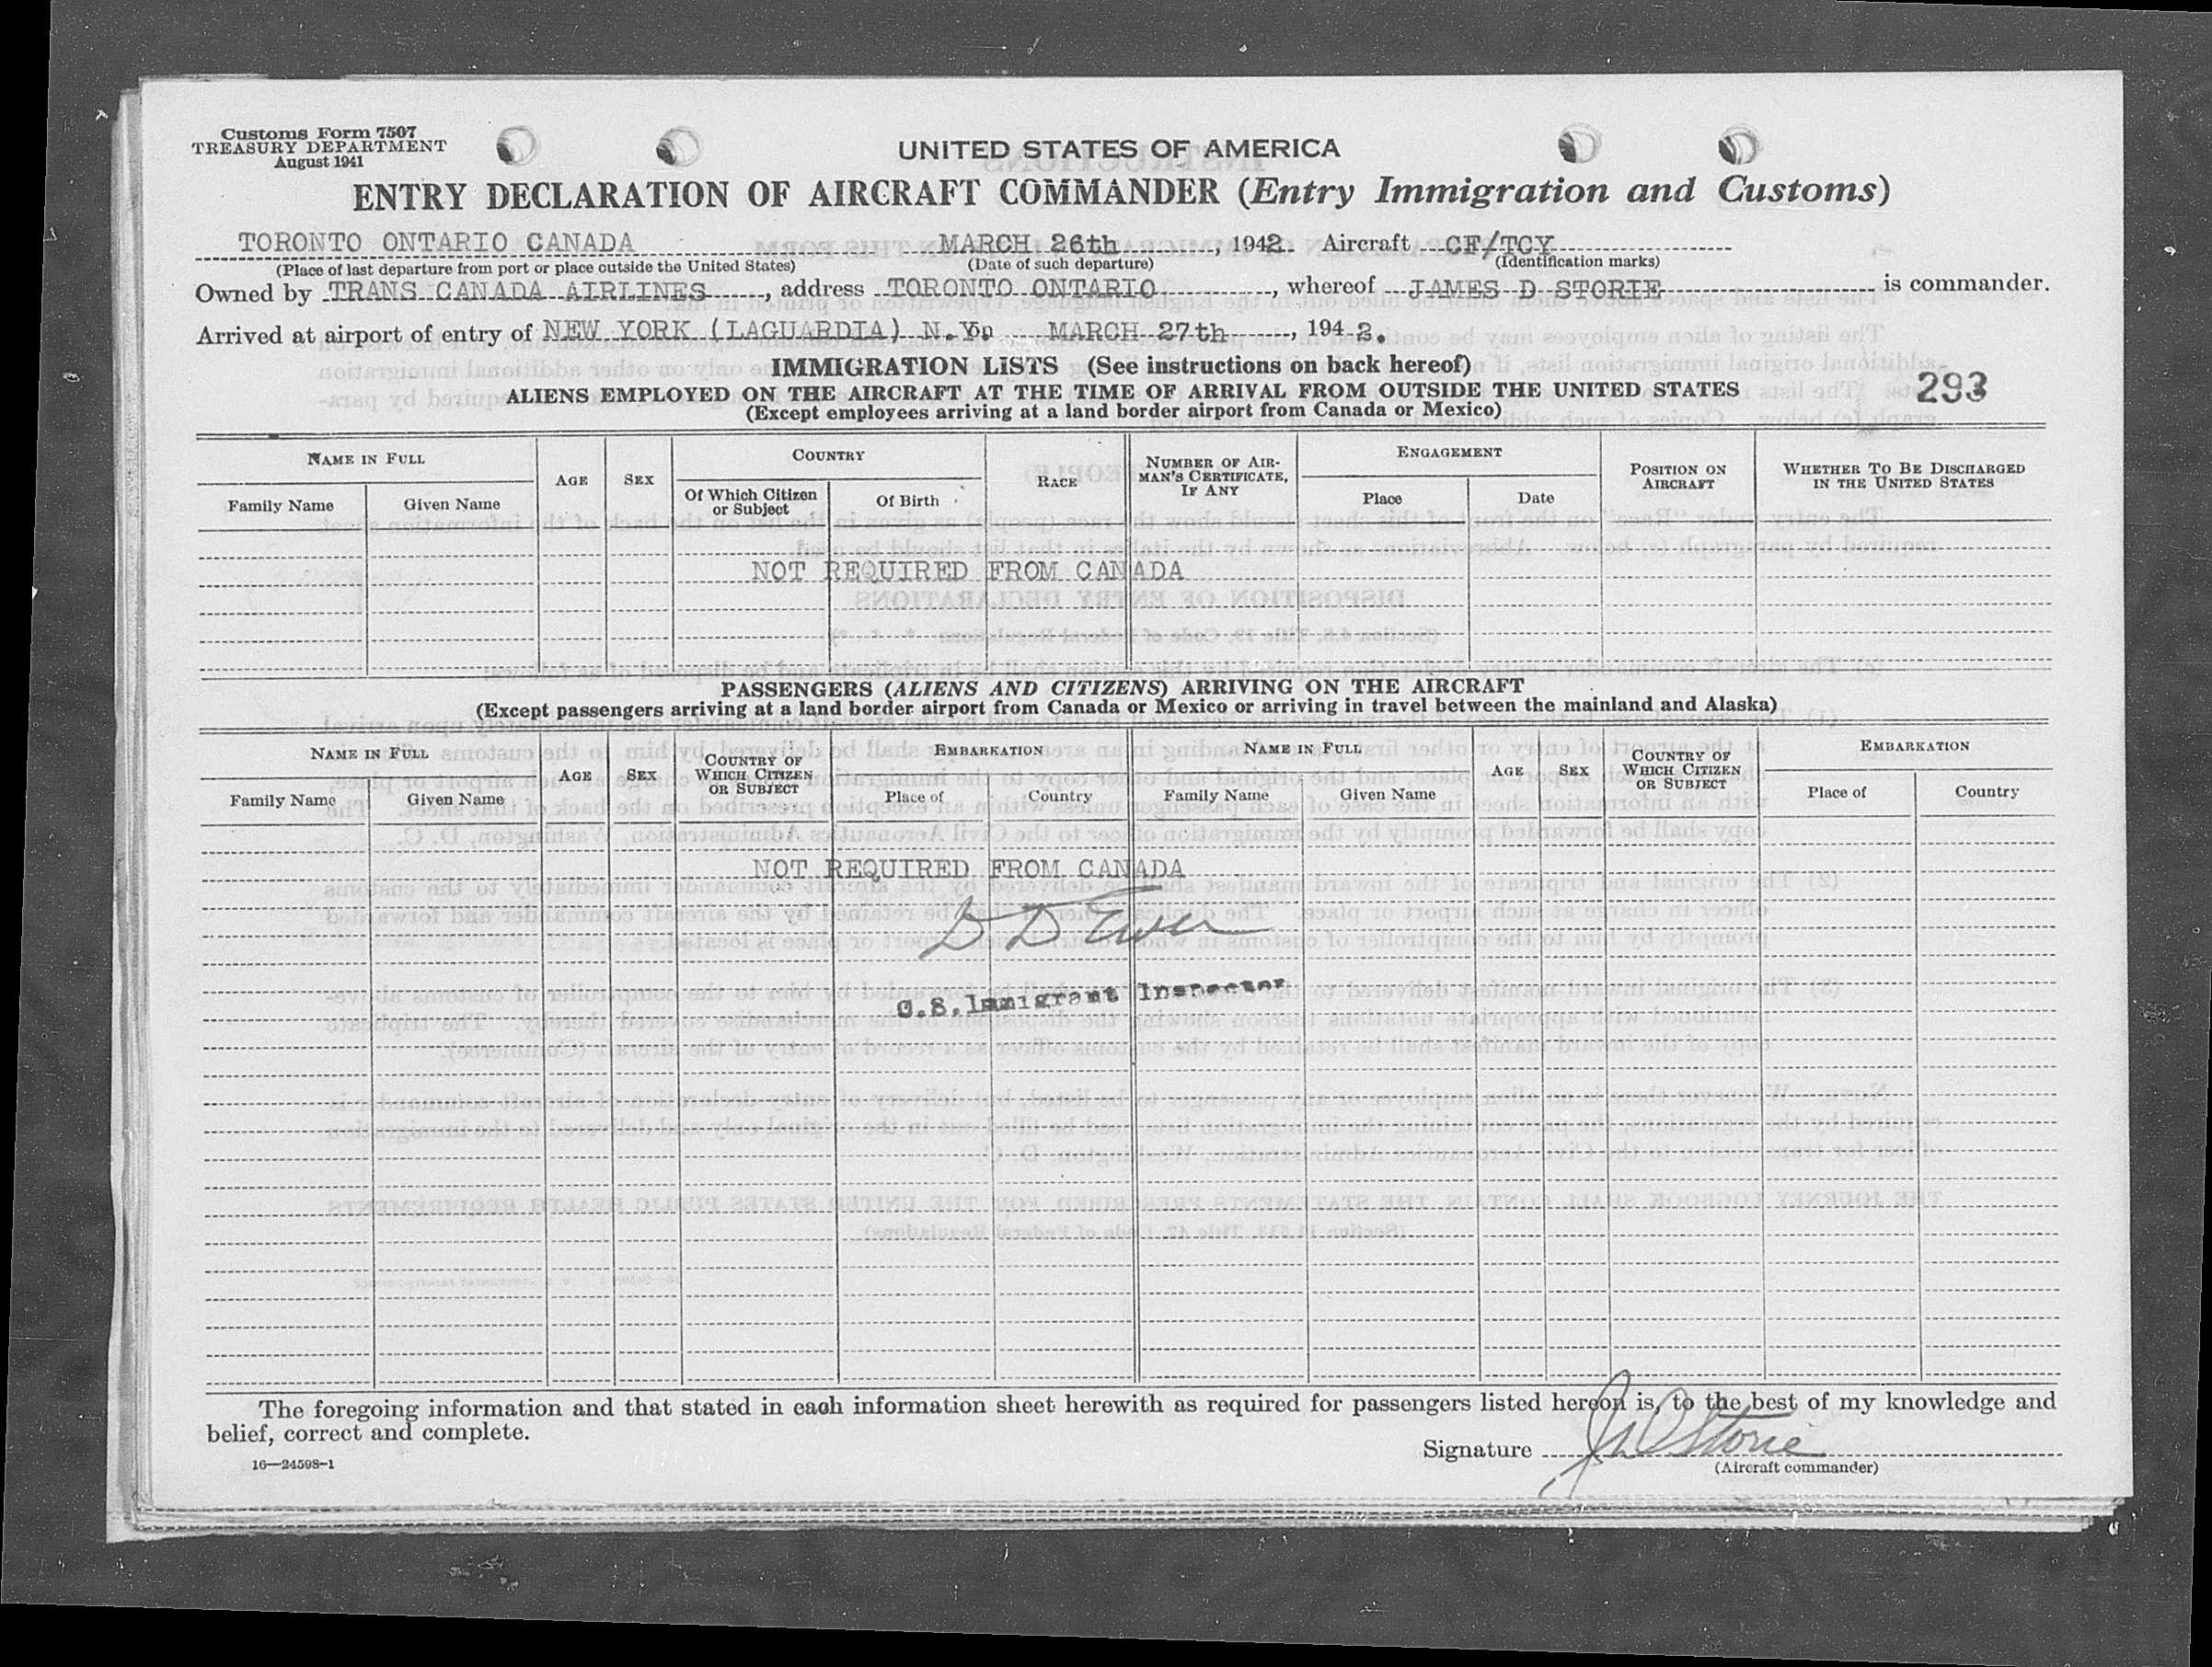 Customs Form 7507
TREASURY DEPARTMENT
August 1941
UNITED STATES OF AMERICA
ENTRY DECLARATION OF AIRCRAFT COMMANDER (Entry Immigration and Customs)
TORONTO ONTARIO CANADA MARCH 26th, 1942 Aircraft CF/TCY
(Place of last departure from port or place outside the United States) (Date of such departure) (Identification marks)
Owned by TRANS CANADA AIRLINES, address TORONTO ONTARIO, whereof JAMES D STORIE is commander.
Arrived at airport of entry of NEW YORK (LAGUARDIA) N.Y. on MARCH 27th, 1942.
IMMIGRATION LISTS (See instructions on back hereof)
ALIENS EMPLOYED ON THE AIRCRAFT AT THE TIME OF ARRIVAL FROM OUTSIDE THE UNITED STATES 293
(Except employees arriving at a land border airport from Canada or Mexico)
NAME IN FULL AGE SEX COUNTRY RACE NUMBER OF AIRMAN'S CERTIFICATE, IF ANY ENGAGEMENT POSITION ON AIRCRAFT WHETHER TO BE DISCHARGED IN THE UNITED STATES
Family Name Given Name Of Which Citizen or Subject Of Birth Place Date
NOT REQUIRED FROM CANADA
PASSENGERS (ALIENS AND CITIZENS) ARRIVING ON THE AIRCRAFT
(Except passengers arriving at a land border airport from Canada or Mexico or arriving in travel between the mainland and Alaska)
NAME IN FULL AGE SEX COUNTRY OF WHICH CITIZEN OR SUBJECT EMBARKATION NAME IN FULL AGE SEX COUNTRY OF WHICH CITIZEN OR SUBJECT EMBARKATION
Family Name Given Name Place of Country Family Name Given Name Place of Country
NOT REQUIRED FROM CANADA
U.S. Immigrant Inspector
The foregoing information and that stated in each information sheet herewith as required for passengers listed hereon is, to the best of my knowledge and
belief, correct and complete.
Signature J D Storie
(Aircraft commander)
16—24598-1